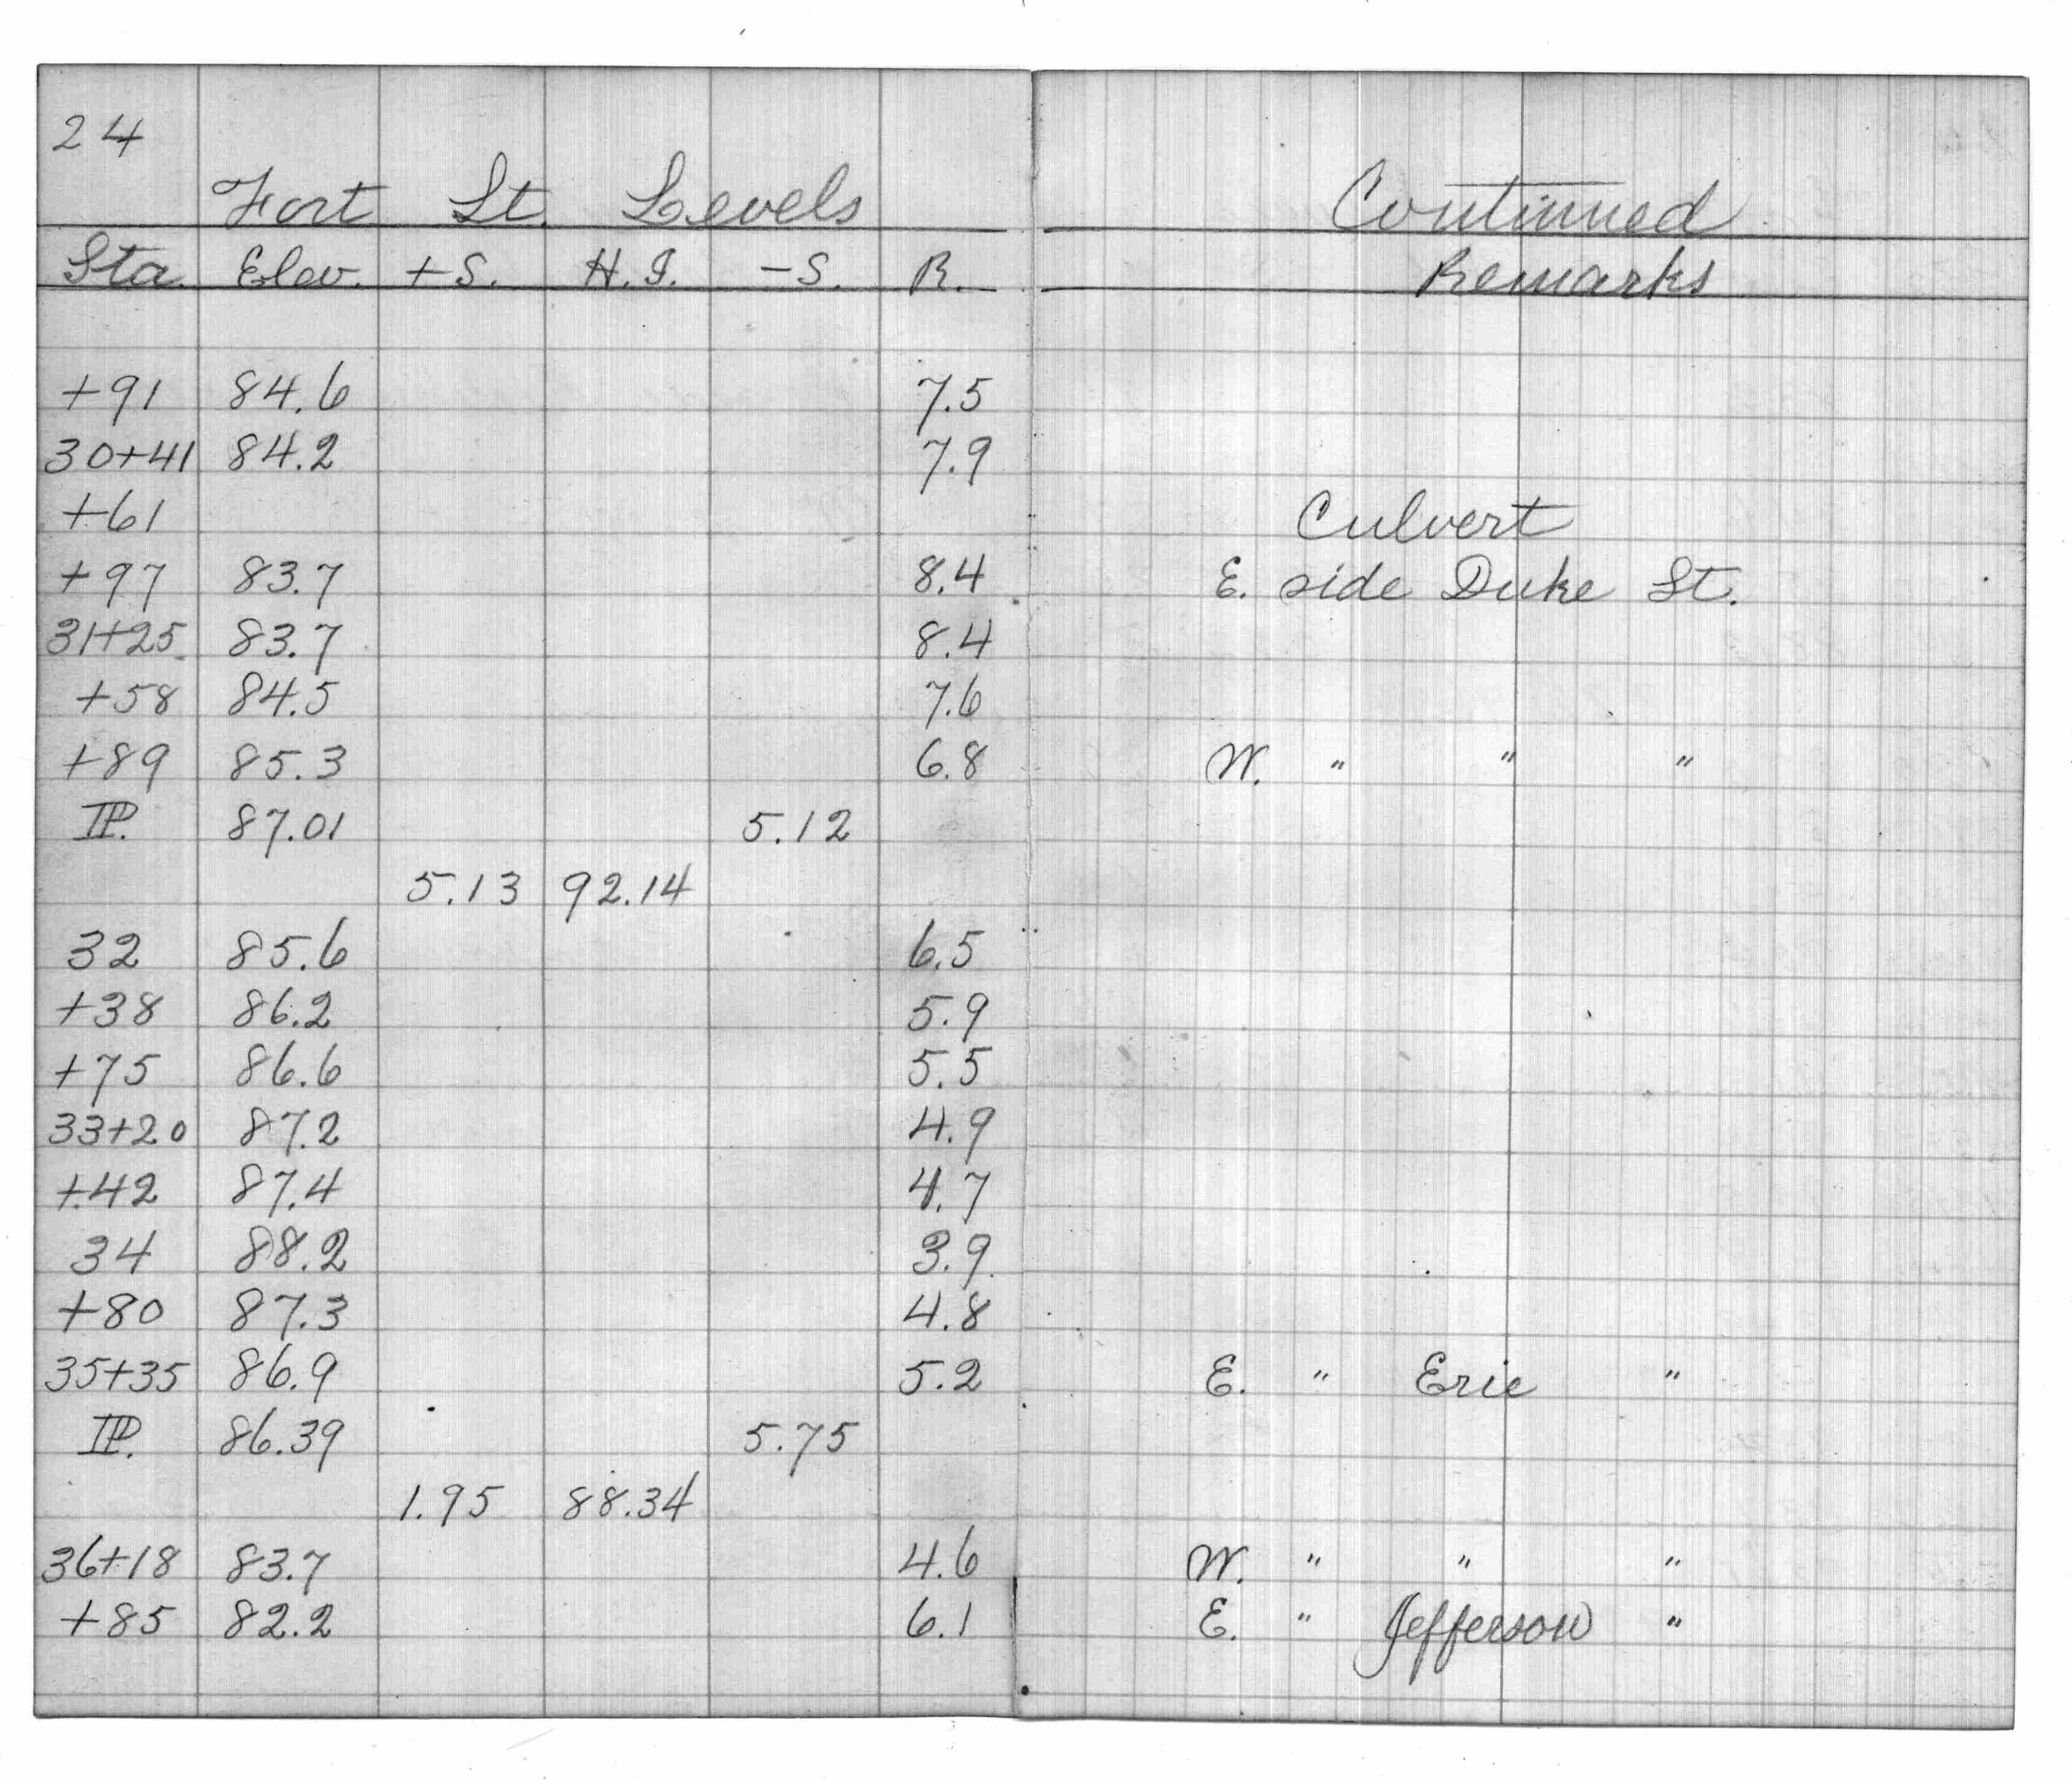 24
Fort St. Levels Continued
Sta. Elev. +S. H.I. -S. R. Remarks
+91 84.6 7.5
30+41 84.2 7.9
+61 Culvert
+97 83.7 8.4 E. side Duke St.
31+25 83.7 8.4
+58 84.5 7.6
+89 85.3 6.8 W. " " "
TP. 87.01 5.12
5.13 92.14
32 85.6 6.5
+38 86.2 5.9
+75 86.6 5.5
33+20 87.2 4.9
+42 87.4 4.7
34 88.2 3.9
+80 87.3 4.8
35+35 86.9 5.2 E. " Erie "
TP. 86.39 5.75
1.95 88.34
36+18 83.7 4.6 W. " " "
+85 82.2 6.1 E. " Jefferson "